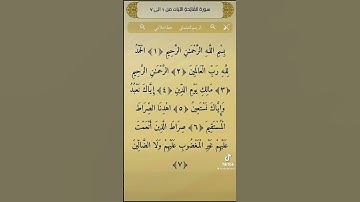 سورة الفاتحة الآيات من ١ الى ٧
بِسْمِ اللَّهِ الرَّحْمَٰنِ الرَّحِيمِ ﴿١﴾ الْحَمْدُ
لِلَّهِ رَبِّ الْعَالَمِينَ ﴿٢﴾ الرَّحْمَٰنِ الرَّحِيمِ
﴿٣﴾ مَالِكِ يَوْمِ الدِّينِ ﴿٤﴾ إِيَّاكَ نَعْبُدُ
وَإِيَّاكَ نَسْتَعِينُ ﴿٥﴾ اهْدِنَا الصِّرَاطَ
الْمُسْتَقِيمَ ﴿٦﴾ صِرَاطَ الَّذِينَ أَنْعَمْتَ
عَلَيْهِمْ غَيْرِ الْمَغْضُوبِ عَلَيْهِمْ وَلَا الضَّالِّينَ
﴿٧﴾
TikTok